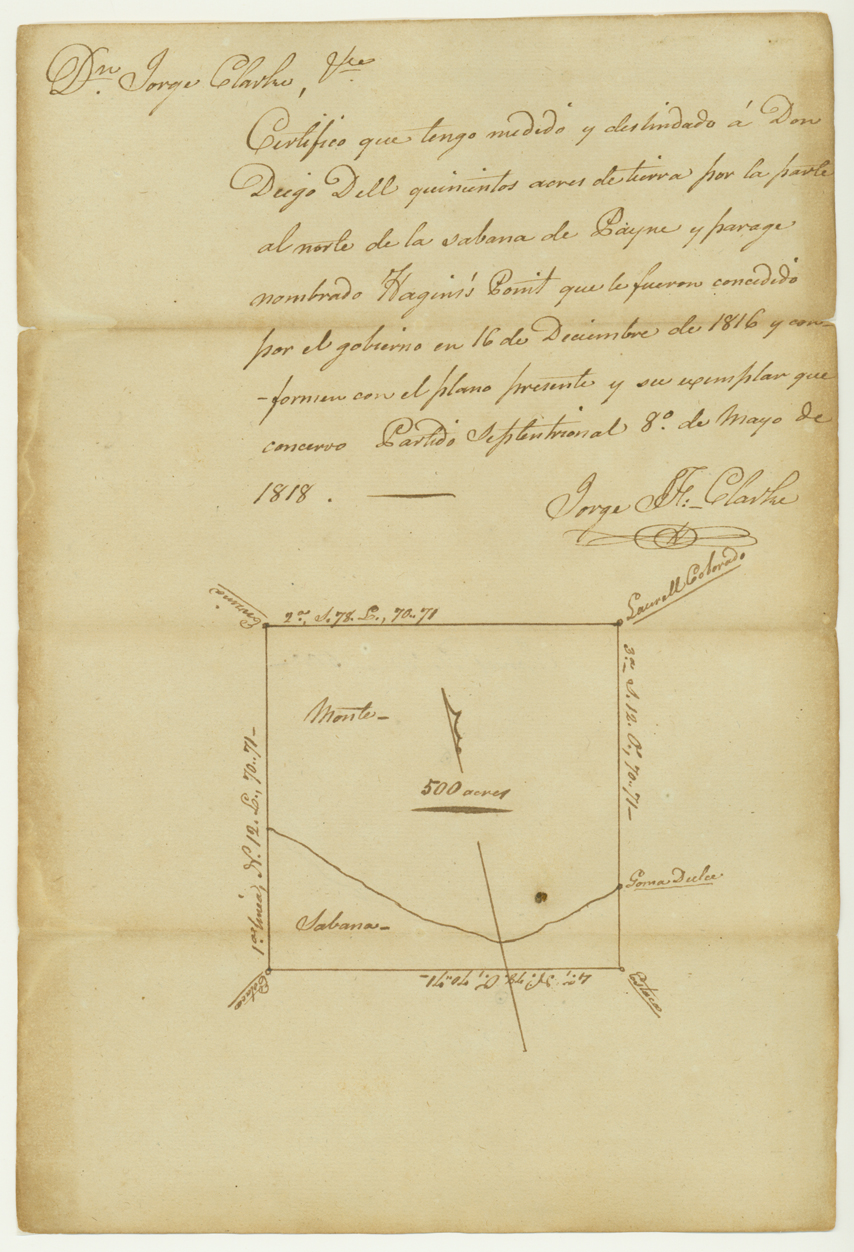 Dn. Jorge Clarke, &ce
Certifico que tengo medido y deslindado á Don
Deigo Dell quinientos acres de tierra por la parte
al norte de la sabana de Payne y parage
nombrado Hagins's Point que le fueron concedido
por el gobierno en 16 de Deciembre de 1816 y con-
-formen con el plano presente y su exemplar que
concervo Partido Septentrional 8º. de Mayo de
1818. —
Jorge J. F. Clarke
Laurell Colorado
Encina
2ª, S. 78. E., 70..71
3ª S. 12. O., 70..71-
Monte-
500 acres
1ª linea, N. 12. E., 70..71-
Goma Dulce
Sabana-
4ª, N. 78. O., 70..71-
Estaca
Estaca